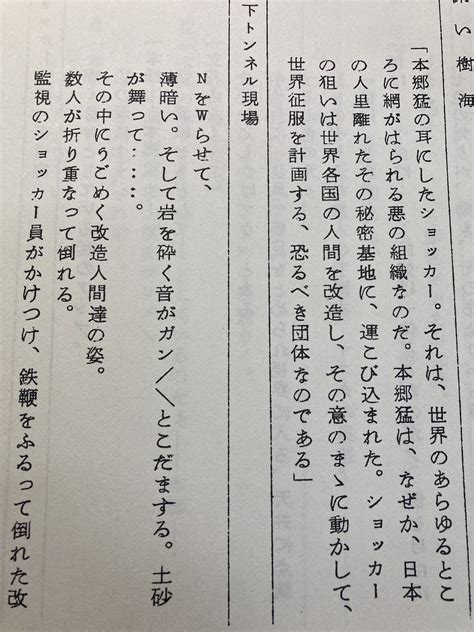 い樹海
「本郷猛の耳にしたショッカー。それは、世界のあらゆるとこ
ろに網がはられる悪の組織なのだ。本郷猛は、なぜか、日本
の人里離れたその秘密基地に、運こび込まれた。ショッカー
の狙いは世界各国の人間を改造し、その意のまゝに動かして、
世界征服を計画する、恐るべき団体なのである」
下トンネル現場
NをWらせて、
薄暗い。そして岩を砕く音がガン/\とこだまする。土砂
が舞って‥‥。
その中にうごめく改造人間達の姿。
数人が折り重なって倒れる。
監視のショッカー員がかけつけ、鉄鞭をふるって倒れた改